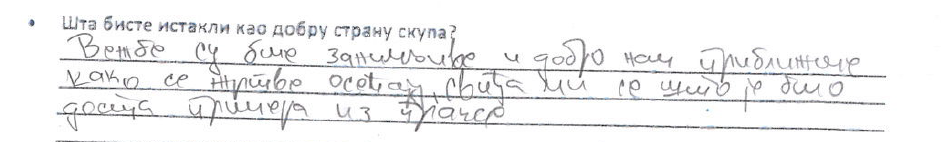 • Шта бисте истакли као добру страну скупа?
Вежбе су биле занимљиве и добро нам приближиле
како се жртве осећају, свиђа ми се што је било
доста примера из праксе